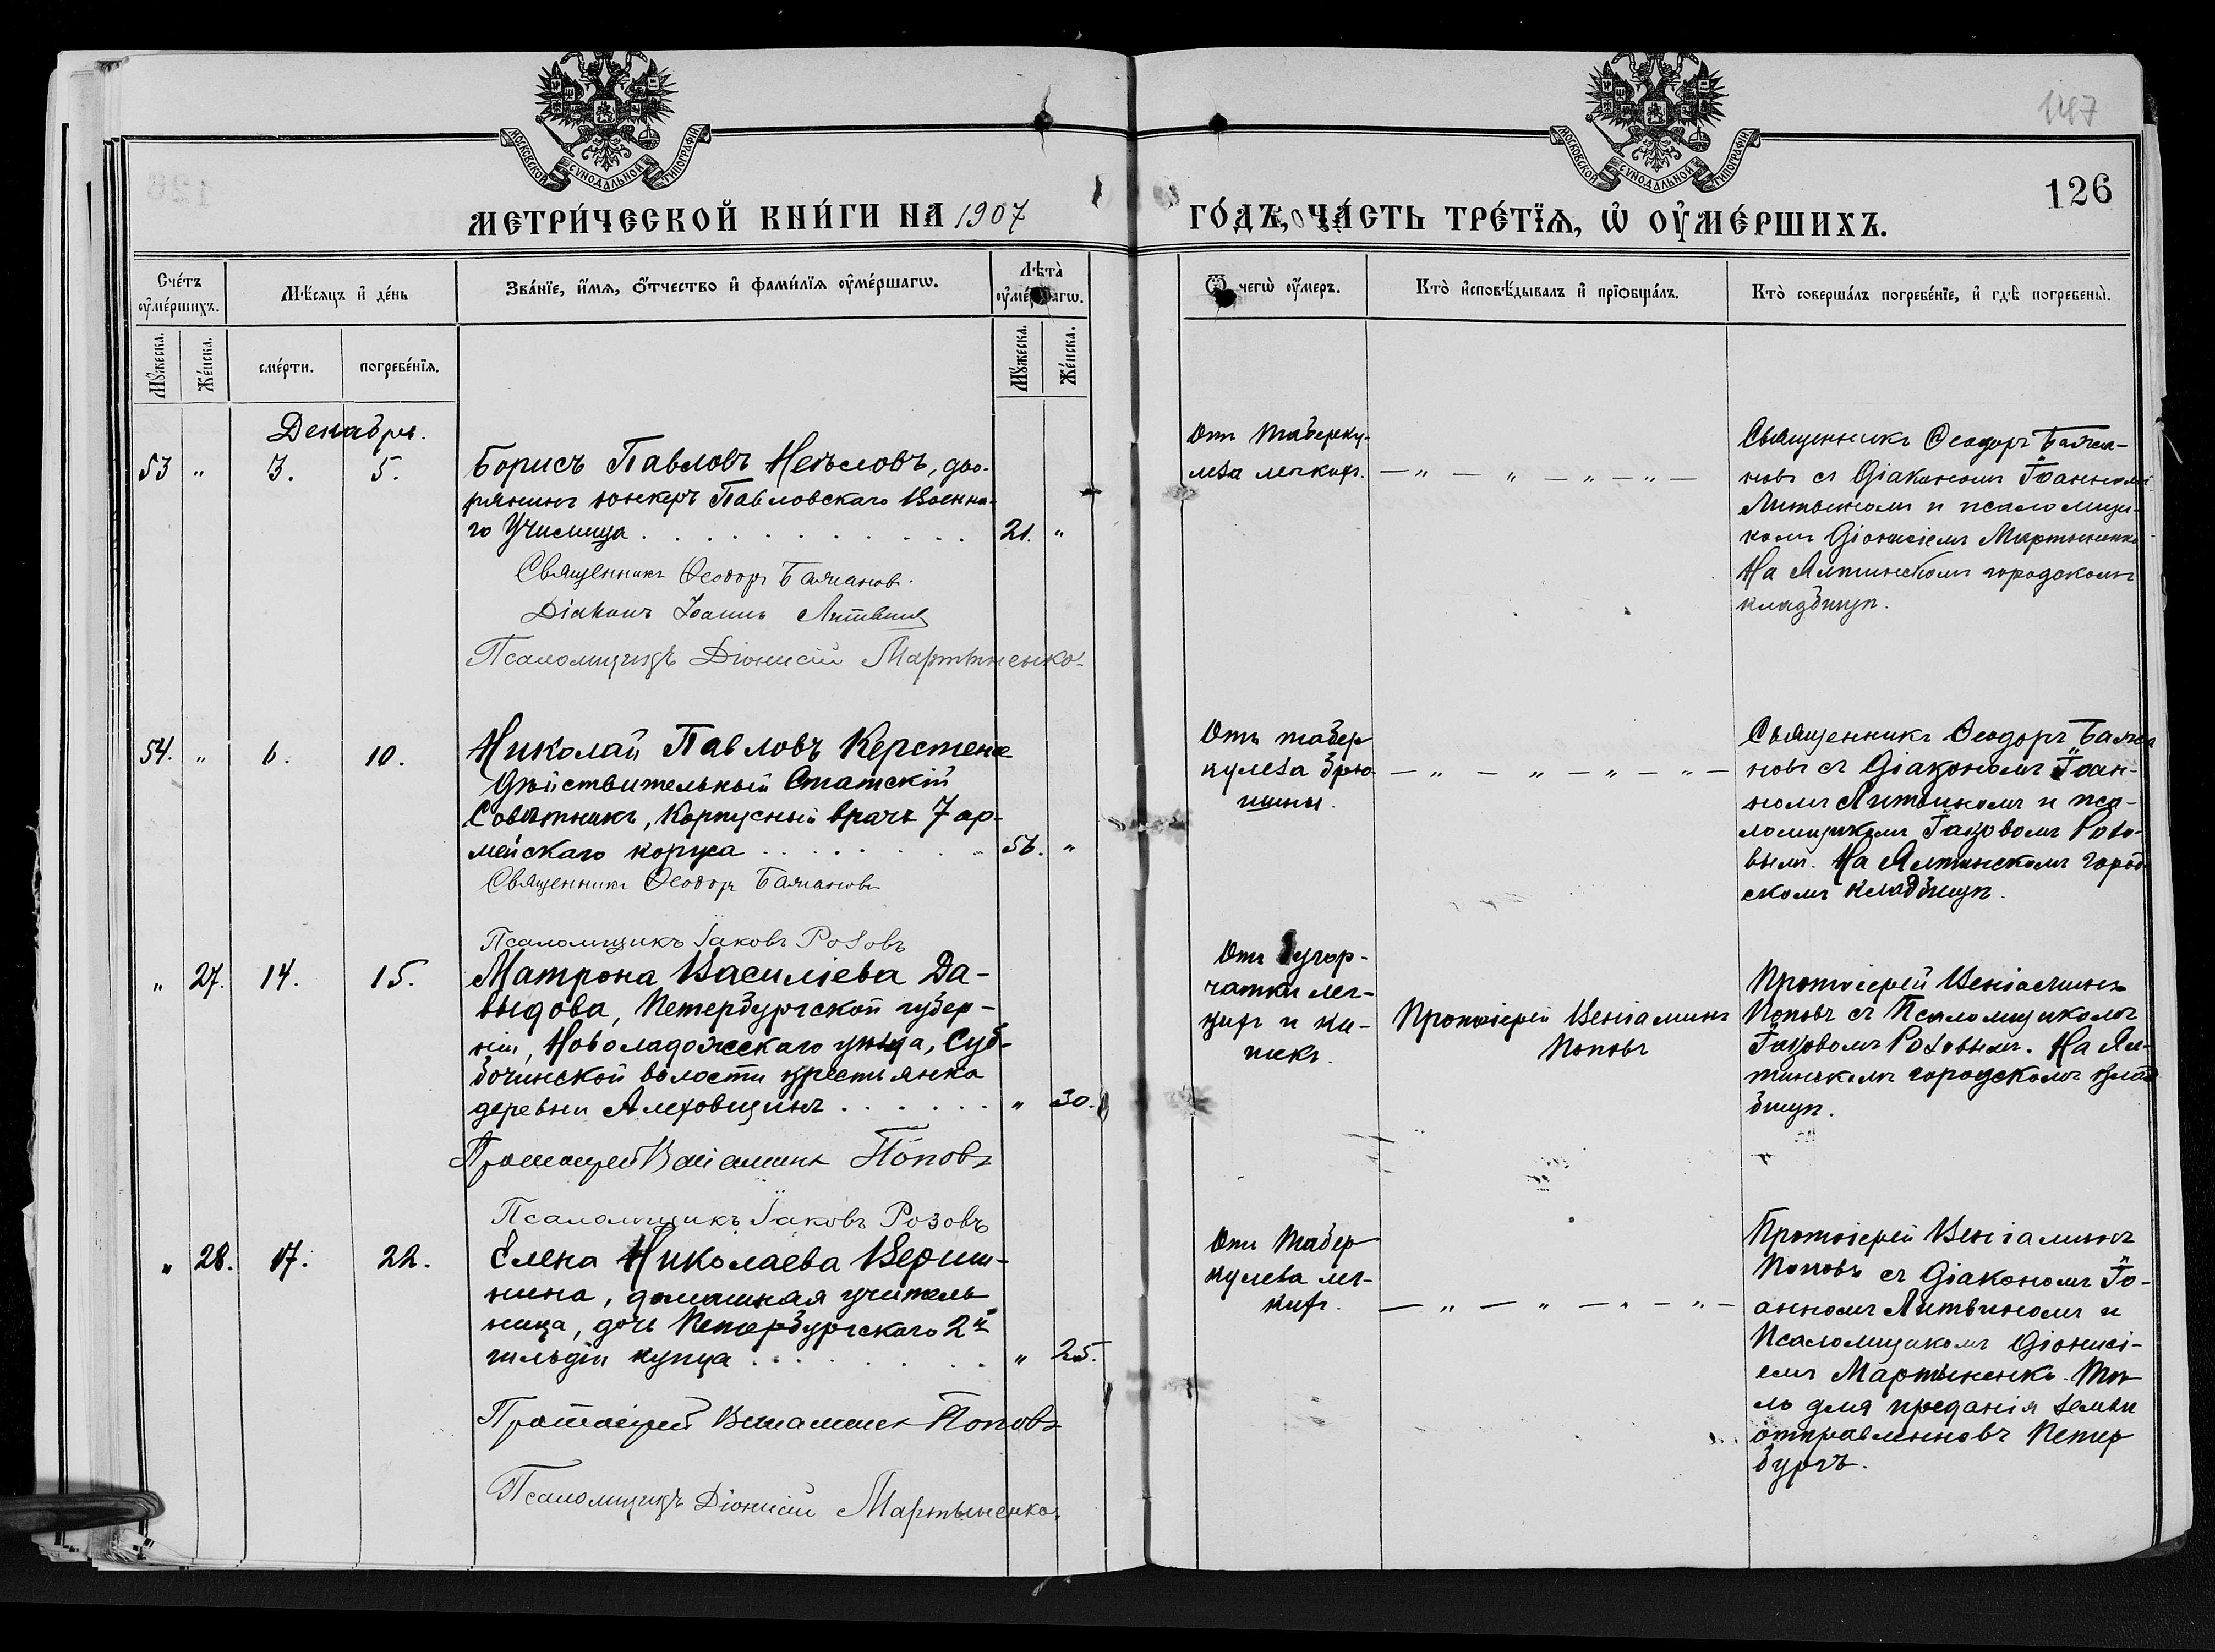 МОСКОВСКОЙ СУНОДАЛЬНОЙ ТИПОГРАФІИ
МОСКОВСКОЙ СУНОДАЛЬНОЙ ТИПОГРАФІИ
147
126
МЕТРИ́ЧЕСКОЙ КНИ́ГИ НА 1907
ГО́ДЪ, ЧА́СТЬ ТРЕ́ТЇѦ, Ѡ ОУ҆МЕ́РШИХЪ.
Сче́тъ оу҆ме́ршихъ.
Мѣ́сяцъ и҆ де́нь
Зва́нїе, и҆́мѧ, ѻ҆́тчество и҆ фами́лїѧ оу҆ме́ршагѡ.
Лѣта̀ оу҆ме́ршагѡ.
Ѿ чегѡ̀ оу҆́меръ.
Кто̀ и҆сповѣ́дывалъ и҆ прїѻбща́лъ.
Кто̀ соверша́лъ погребе́нїе, и҆ гдѣ̀ погребены̀.
Мꙋ́жеска.
Же́нска.
сме́рти.
погребе́нїѧ.
Мꙋ́жеска.
Же́нска.
Декабрь.
53 " 3. 5.
Борисъ Павловъ Нееловъ, дво-
рянинъ юнкеръ Павловскаго Военна-
го Училища . . . . . . . . . . . . 21. "
Священникъ Ѳеодоръ Баяновъ.
Діаконъ Іоаннъ Литвинъ
Псаломщикъ Діонисій Мартыненко
Отъ туберку-
леза легкихъ. — " — " — " — " —
Священникъ Ѳеодоръ Баяа-
новъ съ Діакономъ Іоанномъ
Литвиномъ и псаломщи-
комъ Діонисіемъ Мартыненко
На Ялтинскомъ городскомъ
кладбищѣ.
54. " 6. 10.
Николай Павловъ Керстенс
Дѣйствительный Статскій
Совѣтникъ, Корпусный врачъ 7 ар-
мейскаго корпуса . . . . . . . . 56. "
Священникъ Ѳеодоръ Баяновъ
Псаломщикъ Іаковъ Розовъ
Отъ тубер
кулеза брю-
шины. — " — " — " — " —
Священникъ Ѳеодоръ Баяа
новъ съ Діакономъ Іоан-
номъ Литвиномъ и пса-
ломщикомъ Іаковомъ Розо-
вымъ. На Ялтинскомъ город
скомъ кладбищѣ.
" 27. 14. 15.
Матрона Василіева Да-
выдова, Петербургской губер-
ніи, Новоладожскаго уѣзда, Суб-
бочинской волости крестьянка
деревни Алеховщины . . . . . . " 30.
Протоіерей Веніаминъ Поповъ
Псаломщикъ Іаковъ Розовъ
Отъ бугор-
чатки лег-
кихъ и ки-
шекъ.
Протоіерей Веніаминъ
Поповъ
Протоіерей Веніаминъ
Поповъ съ Псаломщикомъ
Іаковомъ Розовымъ. На Ял-
тинскомъ городскомъ клад
бищѣ.
" 28. 17. 22.
Елена Николаева Верши-
нина, домашная учитель
ница, дочь Петербургскаго 2й
гильдіи купца . . . . . . . . " 25.
Протоіерей Веніаминъ Поповъ
Псаломщикъ Діонисій Мартыненко
Отъ Тубер
кулеза лег-
кихъ. — " — " — " — " —
Протоіерей Веніаминъ
Поповъ съ Діакономъ Іо-
анномъ Литвиномъ и
Псаломщикомъ Діонисі-
емъ Мартыненко. Тѣ
ло для преданія землѣ
отправленновъ Петер
бургъ.